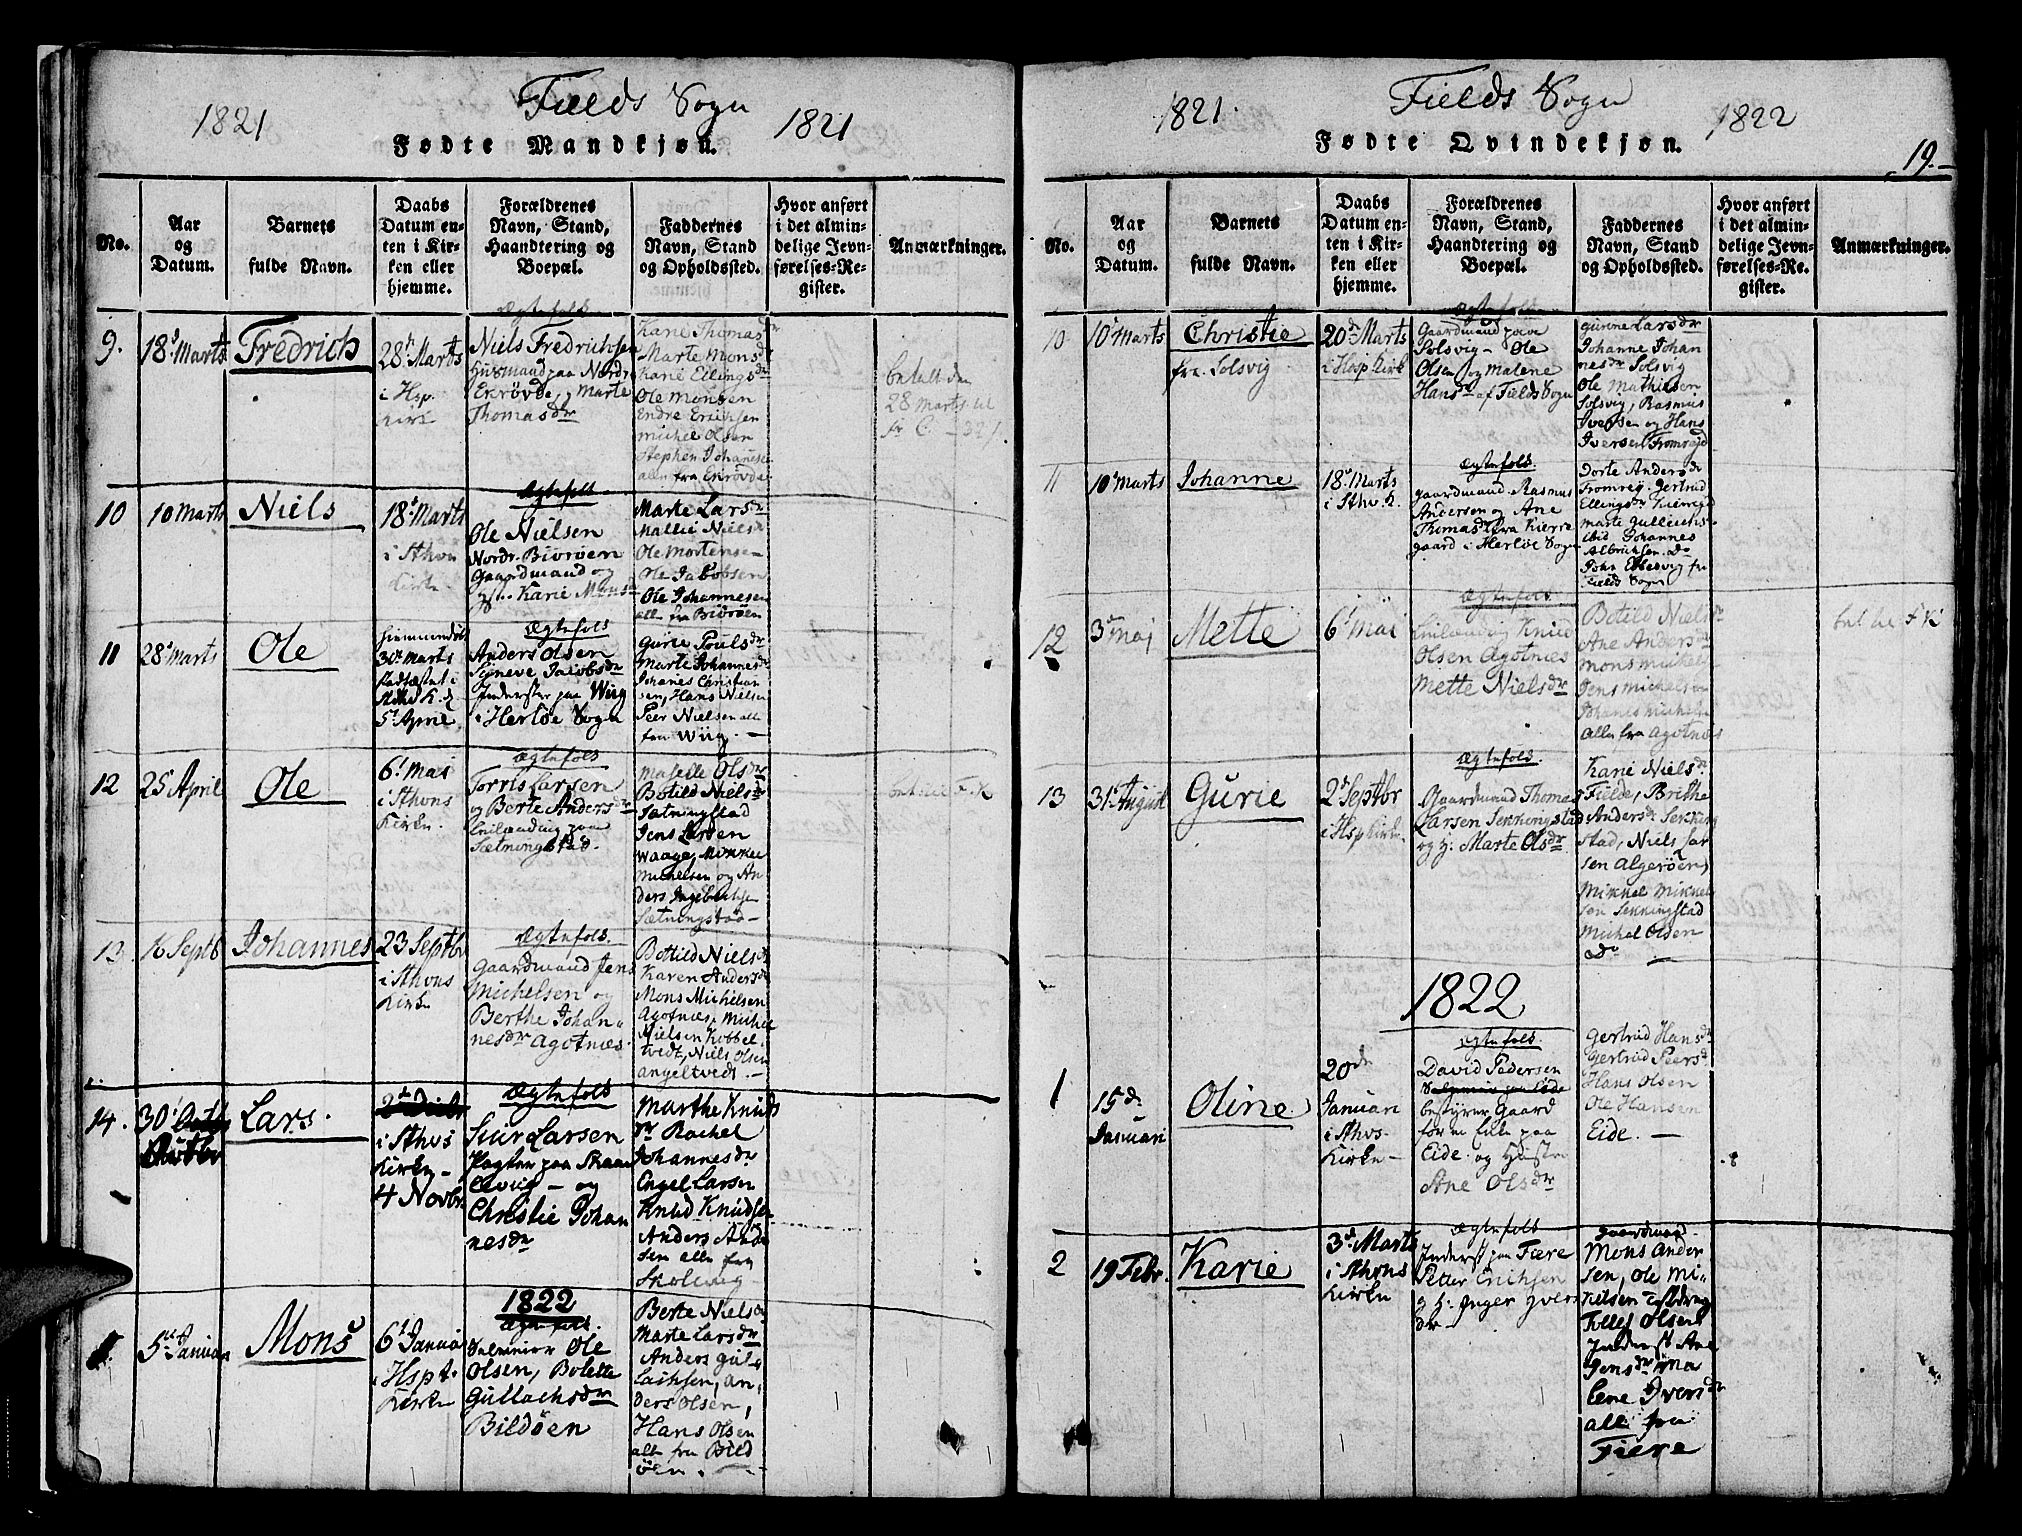 1821
Fields Sogn
1821
Fødte Mandkjøn.
No.
Aar
og
Datum.
Barnets
fulde Navn.
Daabs
Datum en-
ten i Kir-
ken eller
hjemme.
Forældrenes
Navn, Stand,
Haandtering og
Boepæl.
Faddernes
Navn, Stand
og Opholdssted.
Hvor anført
i det almin-
delige Jevn-
førelses-Re-
gister.
Anmærkninger.
9.
18 Marts
Fredrich
28 Marts
i Hsp
Kirke
Ægtefolk
Niels Fredrichsen
Huusmand paa Nordr
Ekrøvde, Marte
Thomasdr
Kari Thomasdr
Marte Monsdr
Kari Ellingsdr
Ole Monsen
Endre Erichsen
Michel Olsen
Stephen Johanesen
alle fra Ekrøvde
betalt den
28 Marts
10
10 Marts
Niels
18 Marts
i Sthvn
Kirke
Ægtefolk
Ole Nielsen
Nordr. Bildøen
Gaardmand og
Karie Monsdr
Marte Larsdr
Mallie Nielsdr
Ole Mortensen
Ole Jacobsen
Ole Johannesen
alle fra Bildøen
11
28 Marts
Ole
hjemmedøbt
30 Marts
Stadfæstet i
5 April
Ægtefolk
Anders Olsen
Signeve Jacobsdr
Inderster paa Wiig
i Herløe Sogn
Gurie Poulsdr
Marte Johannesdr
Johanes Christian
sen, Hans Nielsen
Peer Nielsen alle
fra Wiig.
12
25 April
Ole
6 Mai
i Sthvns
Kirke.
Ægtefolk
Torris Larsen
og Berte Andersdr
paa
Sætningstad.
Maselie Olsdr
Botild Nielsdr
Sætningstad
Jens Larsen
Waage, Mikkel
Michelsen og An
ders Ingebrichtsen
Sætningstad
13.
16 Septb
Johannes
23 Septbr
i Sthvns
Kirke
Ægtefolk.
Gaardmand Jens
Michelsen og
Berthe Johan-
nesdr Agotnæs.
Botild Nielsdr
Karen Andersdr
Mons Michelsen
Agotnæs, Michel
Nielsen Kobbel-
tvedt, Niels Olsen
angeltvedt.
14.
30
Lars.
i Sthvns
Kirke
4 Novbr
Ægtefolk
Siur Larsen
Pagter paa Skaa
levig og
Christie Johan
nesdr
Marthe Knuds
dr Rachel
Johannesdr
Engel Larsen
Knud Knudsen
Anders Ande
sen alle fra
Skolevig
1822
5 Januar
Mons
6 Januar
i Hspt.
Kirke
Ægtefolk.
Ole
Olsen, Bolette
Gullachsdr
Bildøen
Berte Nielsdr
Marte Larsdr
Anders Gul-
lachsen, An-
ders Olsen,
Hans Olsen
alle fra Bild
øen.
1821.
Fields Sogn
1822
Fødte Qvindekjøn.
19.
No.
Aar
og
Datum.
Barnets
fulde Navn.
Daabs
Datum en-
ten i Kir-
ken eller
hjemme.
Forældrenes
Navn, Stand,
Haandtering og
Boepæl.
Faddernes
Navn, Stand
og Opholdssted.
Hvor anført
i det almin-
delige Jevn-
førelses-Re-
gister.
Anmærkninger.
10
10 Marts
Christie
fra Solsvig
20 Marts
i Hsp Kirk
Ægtefolk
Gaardmand paa
Solsvig Ole
Olsen og Malene
Hansdr af Fields Sogn
Gurine Larsdr
Johanne Johan
nesdr Solsvig
Ole Mathiesen
Solsvig, Rasmus
Iversen og Hans
Iversen Fromreid
11
10 Marts
Johanne
18 Marts
i Sthv. K.
Ægtefolk.
Gaardmand Rasmus
Andersen og Ane
Thomasdr fra Kierre
gaard i Herløe Sogn
Dorte Andersdr
Fromreg, Gertrud
Ellingsdr
Marte Gullachs
ibid Johannes
Albrichsen Do
fra
Fields Sogn
12
3 Maj
Mette
6 Mai
Ægtefolk.
Knud
Olsen Agotnæs
Mette Nielsdr
Botild Nielsdr
Ane Andersdr
Mons Mickels
Jens Michelsen
Johanes Michelsen
alle fra Agotnæs
13
31 August
Gurie
2 Septbr
i Hsp Kirke
Ægtefolk.
Gaardmand Thomas
Larsen Sekkingstad
og H: Marte Olsdr
Karie Nielsdr.
Fielde, Brithe
Andersdr Sekking
stad, Niels Lar
sen Algerøen,
Mikkel Mikkel
sen Sekkingstad
Michel Olsen
Do
1822
1
15de
Januari
Oline
20de
Januari
i Sthvs.
Kirke
Ægtefolk.
David Pedersen
bestyrer Gaard
paa
Eide og Hustru
Ane Olsdr
Gertrud Hansdr
Gertrud Peersdr
Hans Olsen
Ole Hansen
Eide.
2
19 Febr.
Karie
3 Marts
i Sthvns
Kirke
Ægtefolk
Inderst paa Fiære
Petter Erichsen
H: Inger Ivers
dr
Gaardmand
Mons Ander
sen, Ole Mi-
kelsen
Tollef Olsen
Inderst Ane
Jensdr Ma
lene Iversdr
alle fra
Fiære